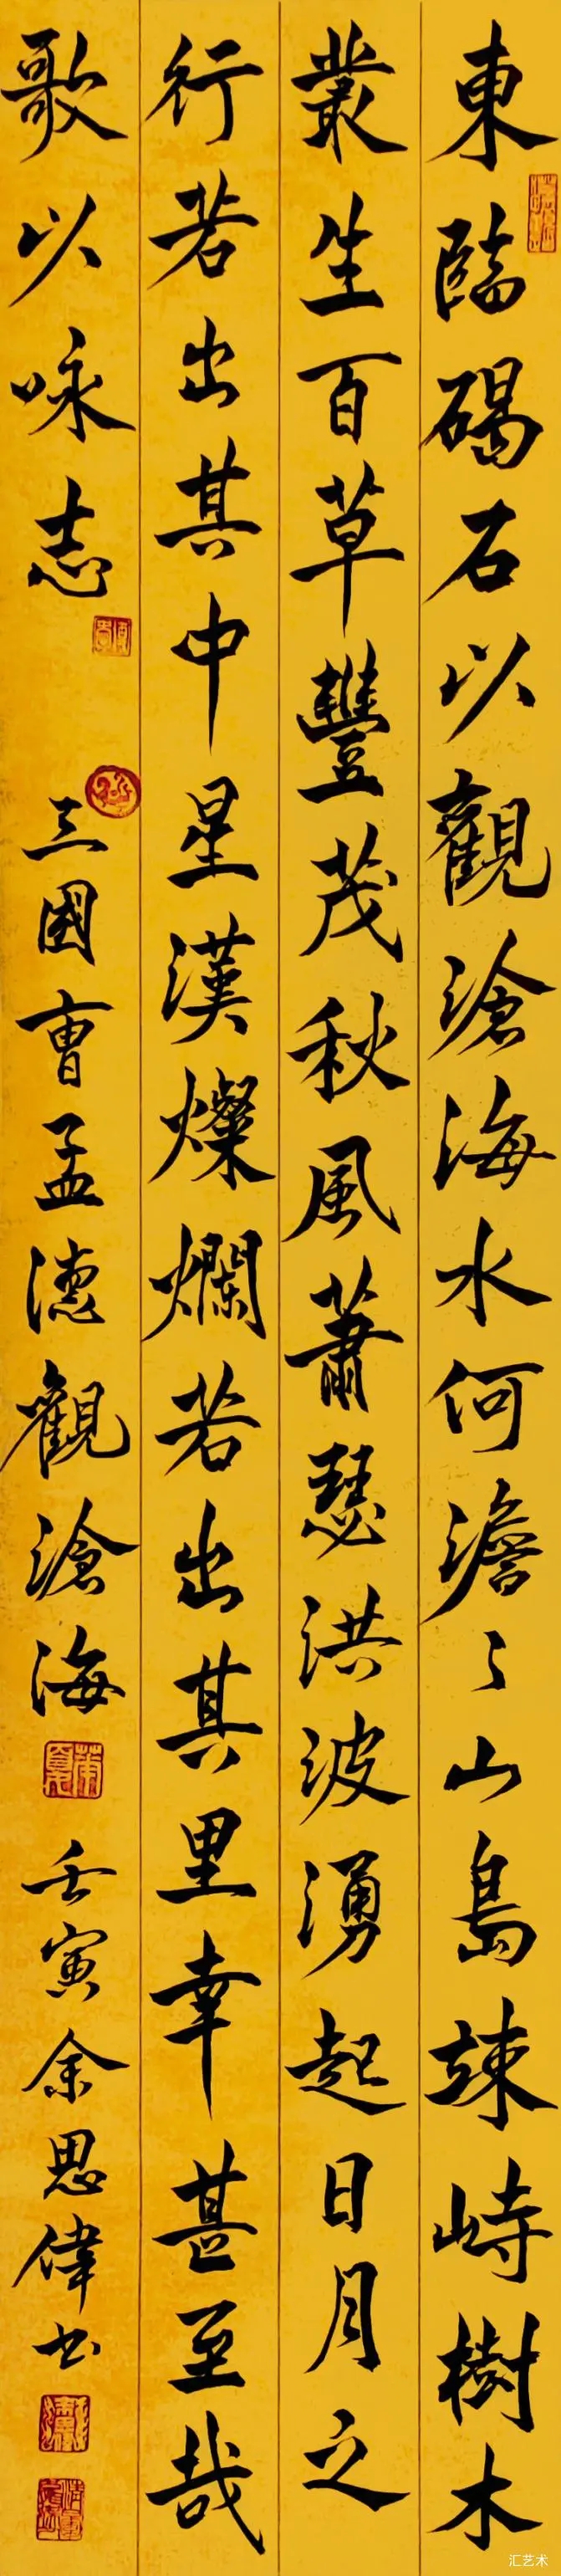 東臨碣石以觀滄海水何澹〻山島竦峙樹木
叢生百草豐茂秋風蕭瑟洪波湧起日月之
行若出其中星漢燦爛若出其里幸甚至哉
歌以咏志
三國曹孟德觀滄海
壬寅余思偉书
汇艺术